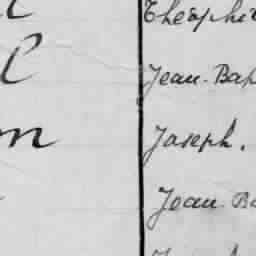 Théophi
l Jean-Bap
on Joseph.
Jean-Ba